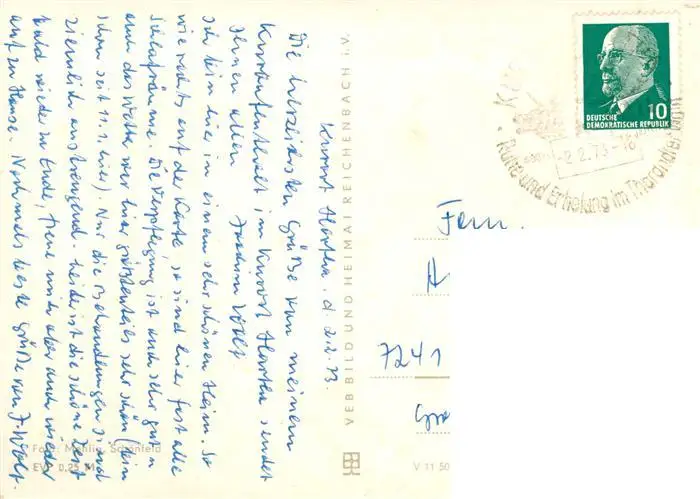 Kurort Hartha, d. 2.2.73.
Die herzlichsten Grüße von meinem
Kuraufenthalt im Kurort Hartha sendet
Ihnen allen Joachim Wolf
Ich bin hier in einem sehr schönen Heim. So
wie rechts auf der Karte, so sind hier fast alle
Schlafräume. Die Verpflegung ist auch sehr gut u.
auch das Wetter war hier größtenteils sehr schön (bin
schon seit 11.1. hier). Nur die Behandlungen sind
ziemlich anstrengend. Leider ist die schöne Zeit
bald wieder zu Ende, freue mich aber auch wieder
auf zu Hause. Nochmals beste Grüße von J. Wolf.
Foto: Mehlig, Schönfeld
EVP 0,25 M
VEB BILD UND HEIMAT REICHENBACH i. V.
V 11 50
10
DEUTSCHE
DEMOKRATISCHE REPUBLIK
2.2.73-16
Ruhe und Erholung im Tharandter Wald
Fam.
7241